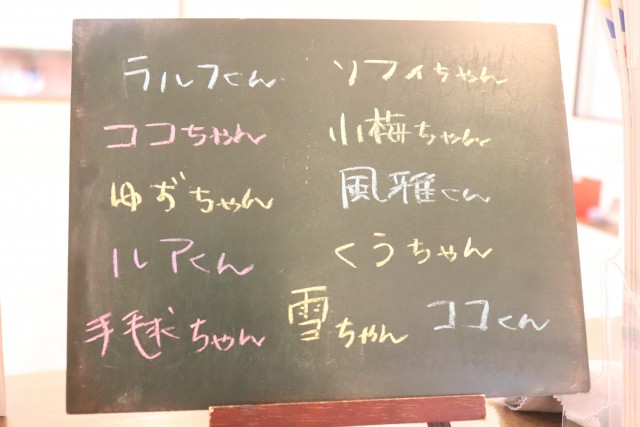 ラルフくん ソフィちゃん
ココちゃん 小梅ちゃん
ゆずちゃん 風雅くん
ルアくん くうちゃん
手毬ちゃん 雪ちゃん ココくん